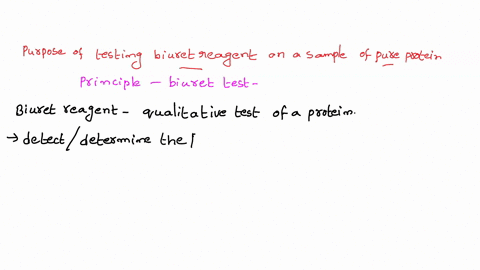 Purpose of testing biuret reagent on a sample of pure protein
Principle - biuret test-
Biuret reagent - qualitative test of a protein.
→ detect/determine the